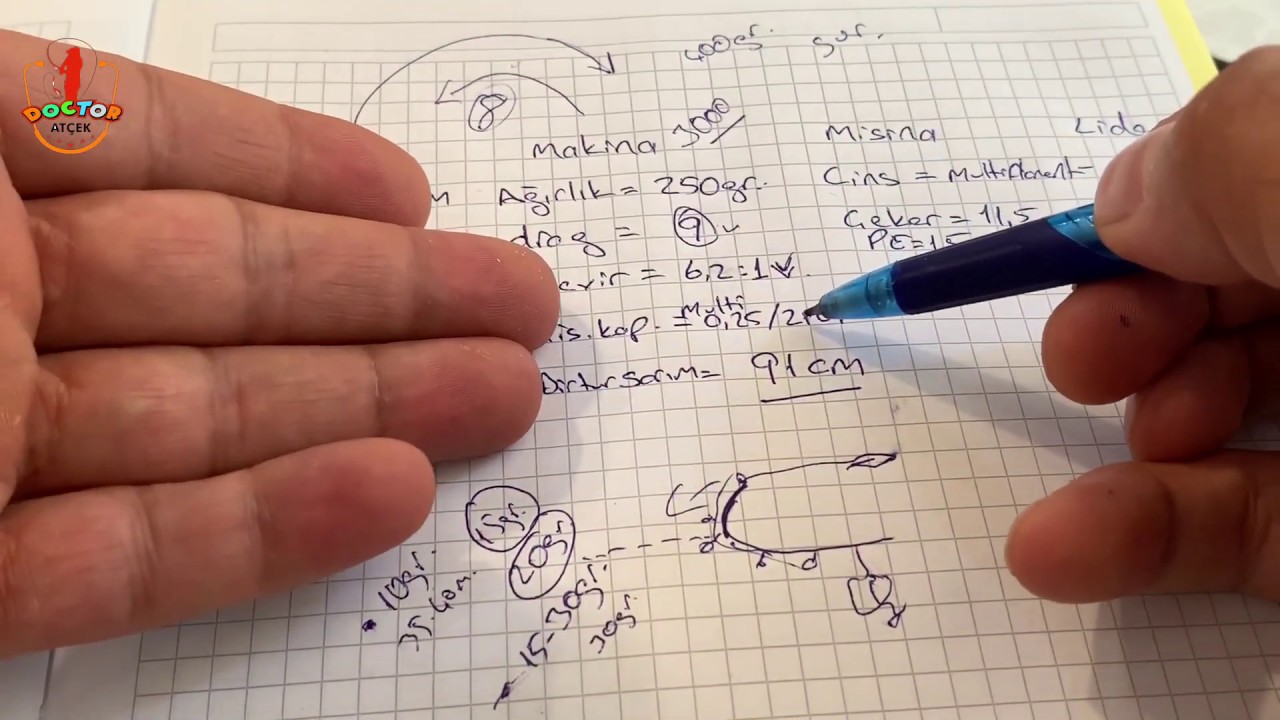 DOCTOR
ATÇEK
400gr.
8
Makina 3000
Misina
Lide
Ağırlık = 250gr.
Cins = Multifilament
drag = 9
Çeker = 11,5
PE=1,5
evir = 6,2:1
is.kap. = Multi 0,25/2
Bir tur sarım = 91 cm
15gr.
20gr
10gr.
35-40m.
15-30gr.
30gr.